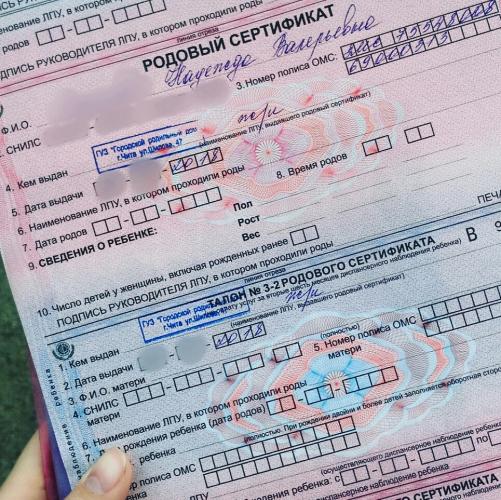 именование ЛПУ, в котором проходили роды
родов
ПОДПИСЬ РУКОВОДИТЕЛЯ ЛПУ, в котором проходили роды
линия отреза
РОДОВЫЙ СЕРТИФИКАТ
Надежда Валерьевна
3. Номер полиса ОМС:
Ф.И.О.
СНИЛС
4. Кем выдан
ГУЗ "Городской родильный дом"
г.Чита ул.Шилова, 47
(наименование ЛПУ, выдавшего родовый сертификат)
5. Дата выдачи 2018
6. Наименование ЛПУ, в котором проходили роды
7. Дата родов
8. Время родов
9. СВЕДЕНИЯ О РЕБЕНКЕ:
Пол
Рост
Вес
10. Число детей у женщины, включая рожденных ранее
ПОДПИСЬ РУКОВОДИТЕЛЯ ЛПУ, в котором проходили роды
ПЕЧА
линия отреза
ТАЛОН № 3-2 РОДОВОГО СЕРТИФИКАТА
В
услуг за вторые шесть месяцев диспансерного наблюдения ребенка)
ГУЗ "Городской
г.Чита ул.Шилова
1. Кем выдан
родовый сертификат)
2. Дата выдачи 2018
(полностью)
3. Ф.И.О. матери
5. Номер полиса ОМС
матери
4. СНИЛС
матери
6. Наименование ЛПУ, в котором проходили роды
7. рождения ребенка (дата родов)
(полностью. При рождении двойни и более детей заполняется оборотная сторо
ребенка
полиса ОМС
(осуществляющего диспансерное наблюдение ребенка)
ЛПУ
диспансерного наблюдения ребенка: с
по
наблюдение ребенка